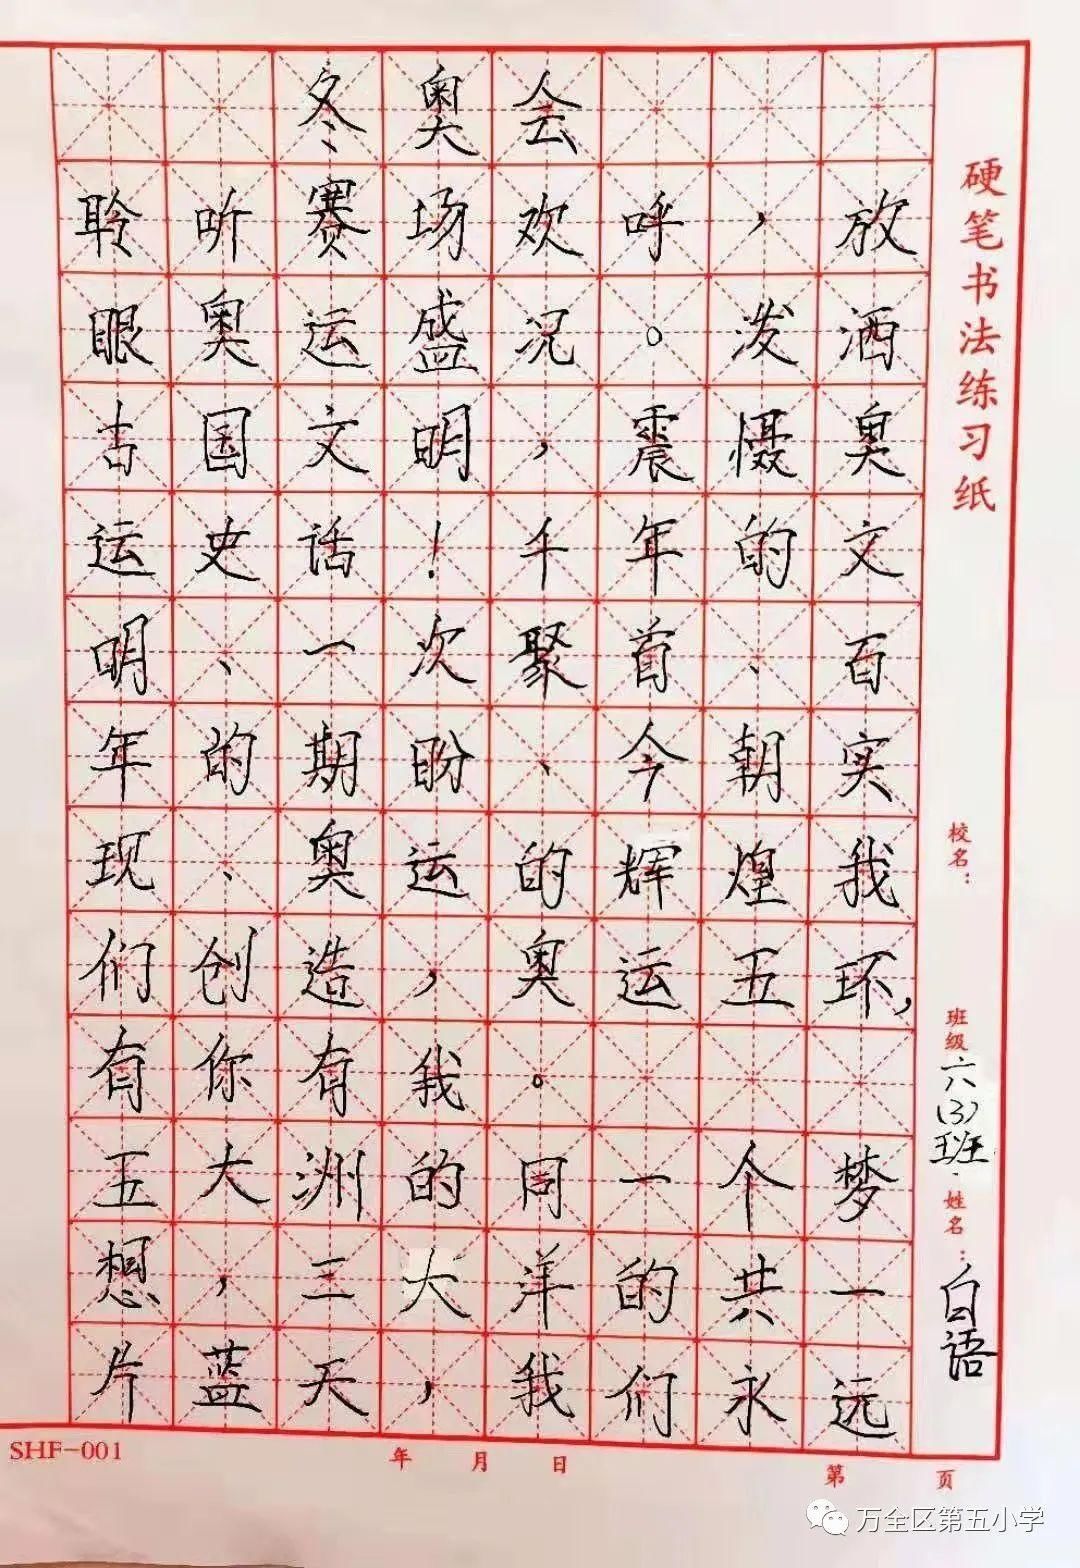 冬奥会
聆听赛场欢呼，放
眼奥运盛况。泼洒
吉国文明，震慑奥
运史话！千年的文
明、一次聚首、百
年的期盼、今朝实
现、奥运的辉煌我
们创造，奥运五环，
有你有我。
五大洲的同一个梦
想，三大洋的共一
片蓝天，我们永远
硬笔书法练习纸
校名：
班级六(3)班
姓名：白语
SHF-001
年 月 日
第 页
万全区第五小学